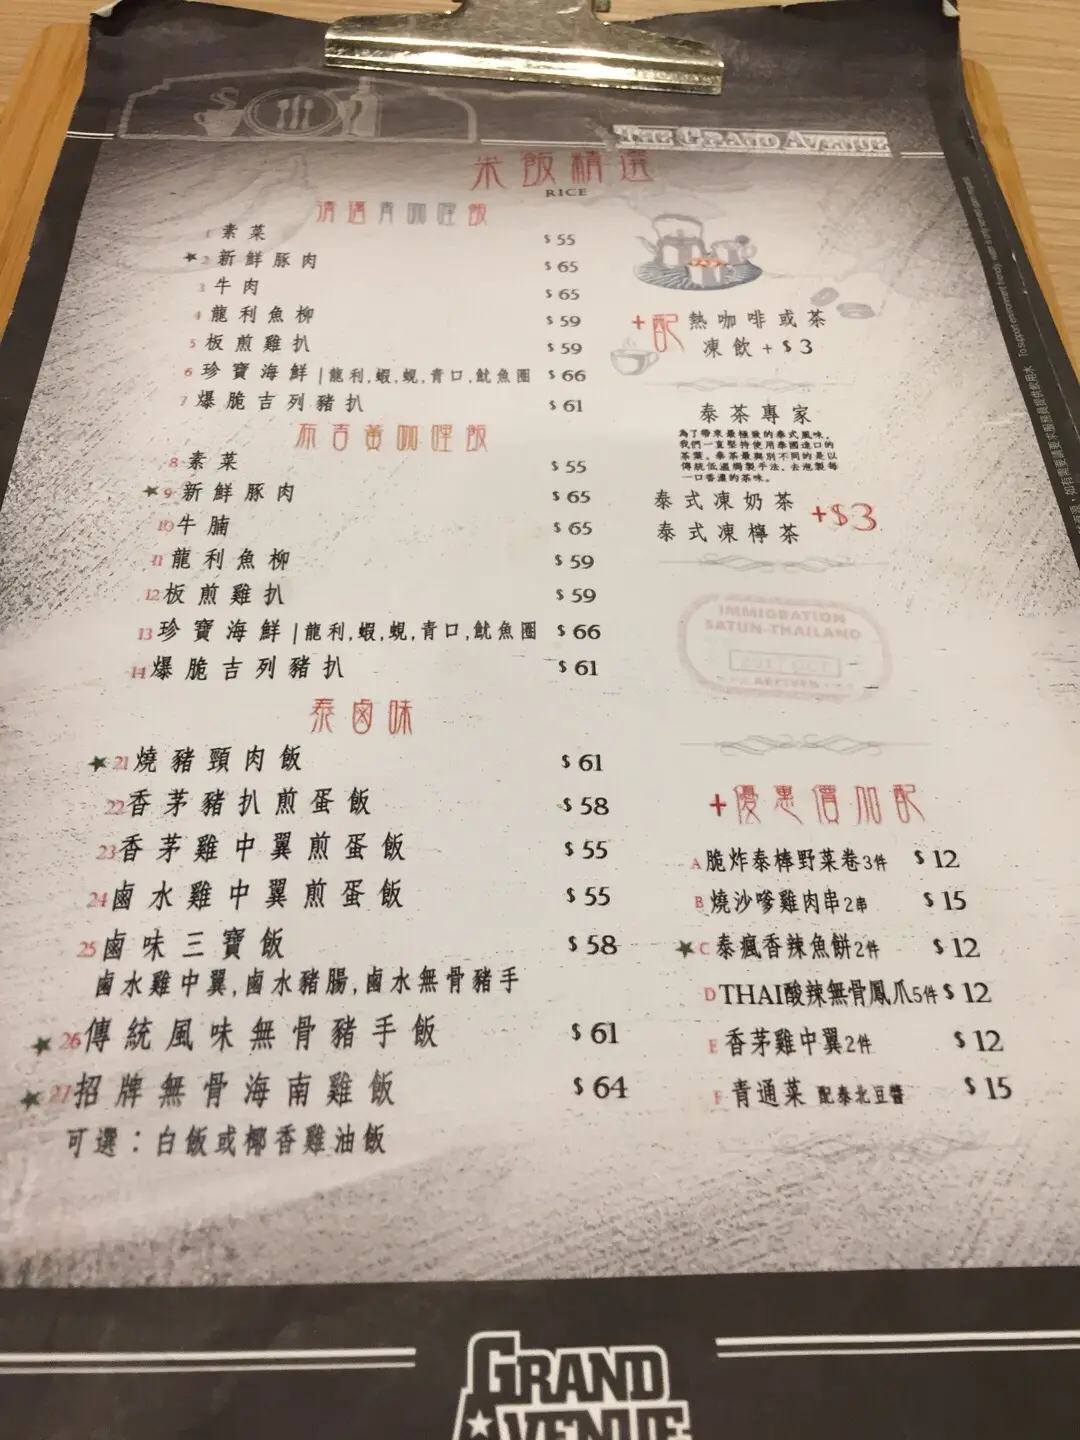 THE GRAND AVENUE
米飯精選
RICE
清邁青咖喱飯
1 素菜 $55
★2 新鮮豚肉 $65
3 牛肉 $65
4 龍利魚柳 $59
5 板煎雞扒 $59
6 珍寶海鮮|龍利,蝦,蜆,青口,魷魚圈 $66
7 爆脆吉列豬扒 $61
布吉黃咖喱飯
8 素菜 $55
★9 新鮮豚肉 $65
10 牛腩 $65
11 龍利魚柳 $59
12 板煎雞扒 $59
13 珍寶海鮮|龍利,蝦,蜆,青口,魷魚圈 $66
14 爆脆吉列豬扒 $61
泰鹵味
★21 燒豬頸肉飯 $61
22 香茅豬扒煎蛋飯 $58
23 香茅雞中翼煎蛋飯 $55
24 鹵水雞中翼煎蛋飯 $55
25 鹵味三寶飯 $58
鹵水雞中翼,鹵水豬腸,鹵水無骨豬手
★26 傳統風味無骨豬手飯 $61
★27 招牌無骨海南雞飯 $64
可選：白飯或椰香雞油飯
+配 熱咖啡或茶
凍飲+$3
泰茶專家
為了帶來最極致的泰式風味,
我們一直堅持使用泰國進口的
茶葉。泰茶最與別不同的是以
傳統低溫焗製手法,去泡製每
一口香濃的茶味。
泰式凍奶茶
泰式凍檸茶 +$3
IMMIGRATION
SATUN-THAILAND
+優惠價加配
A 脆炸泰棒野菜卷3件 $12
B 燒沙嗲雞肉串2串 $15
★C 泰瘋香辣魚餅2件 $12
D THAI酸辣無骨鳳爪5件 $12
E 香茅雞中翼2件 $12
F 青通菜 配泰北豆醬 $15
To support environment friendly, water is only served upon request
GRAND
AVENUE